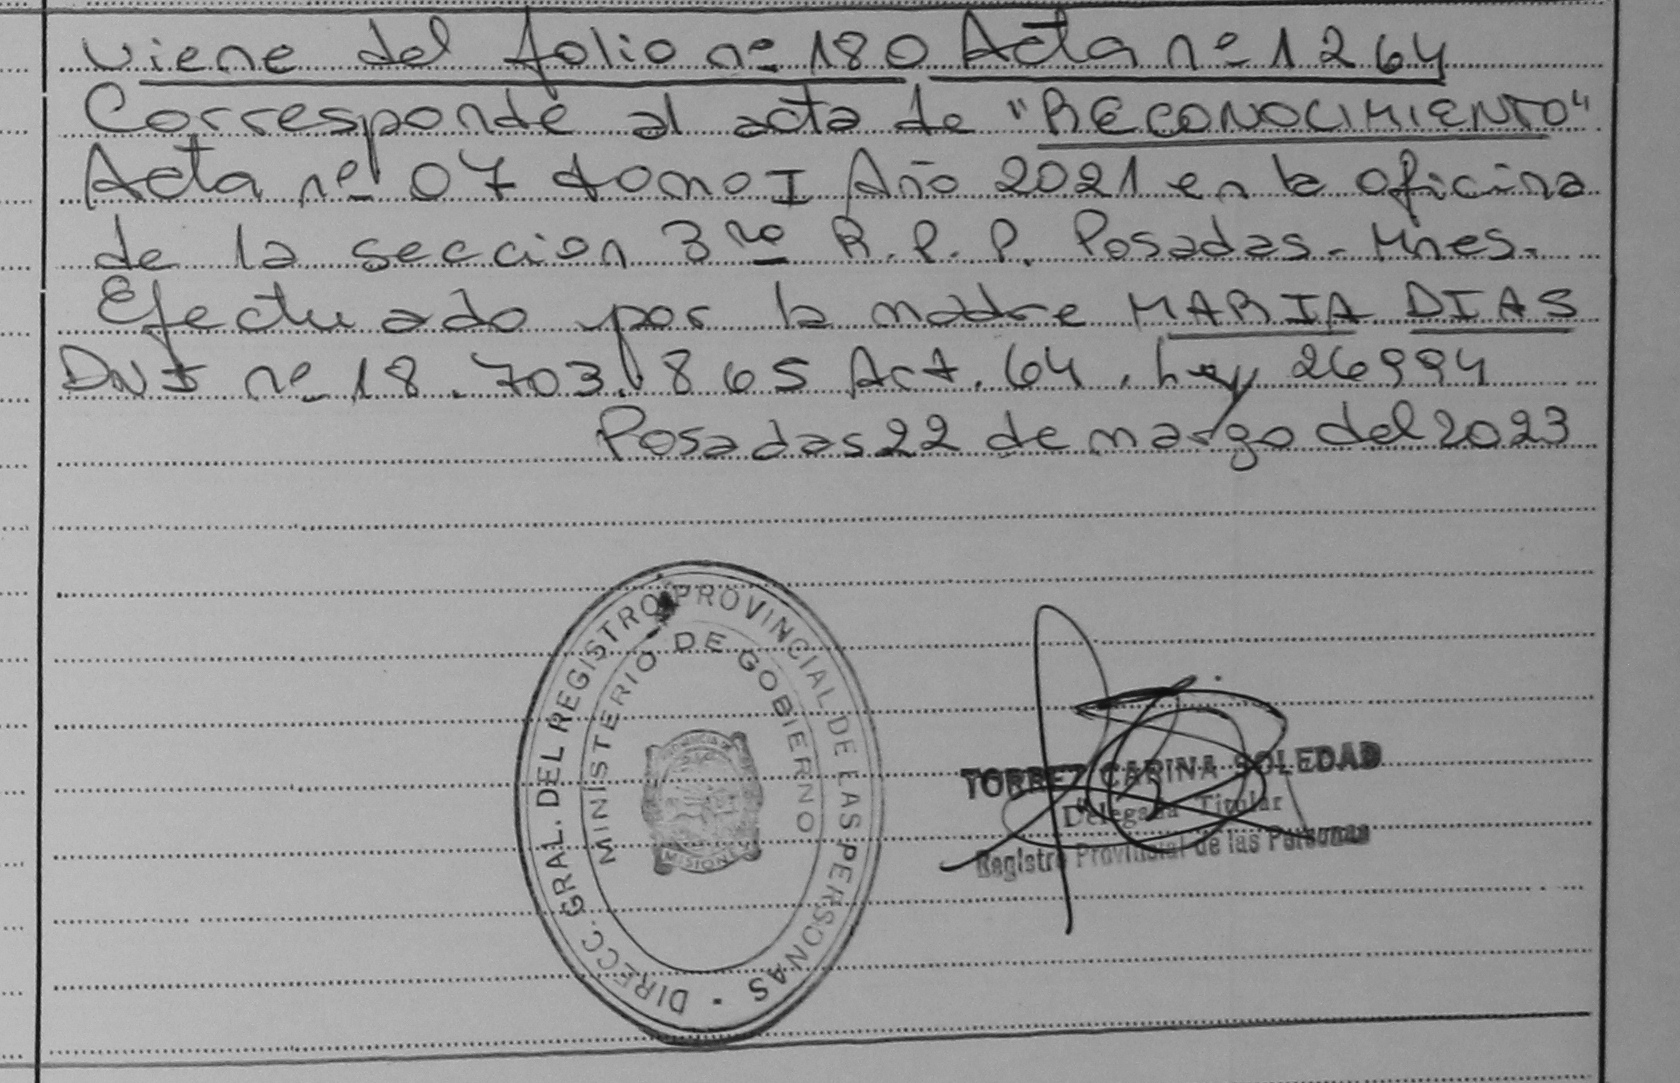 viene del folio nº 180 Acta nº 1264
Corresponde al acta de "RECONOCIMIENTO"
Acta nº 07 tomo I Año 2021 en la oficina
de la seccion 3ra R.P.P. Posadas - Mnes.
Efectuado por la madre MARIA DIAS
DNI nº 18.703.865 Art. 64. ley 26994
Posadas 22 de marzo del 2023
DIRECC. GRAL. DEL REGISTRO PROVINCIAL DE LAS PERSONAS
MINISTERIO DE GOBIERNO
PROVINCIA DE
MISIONES
TORREZ CARINA SOLEDAD
Delegada Titular
Registro Provincial de las Personas